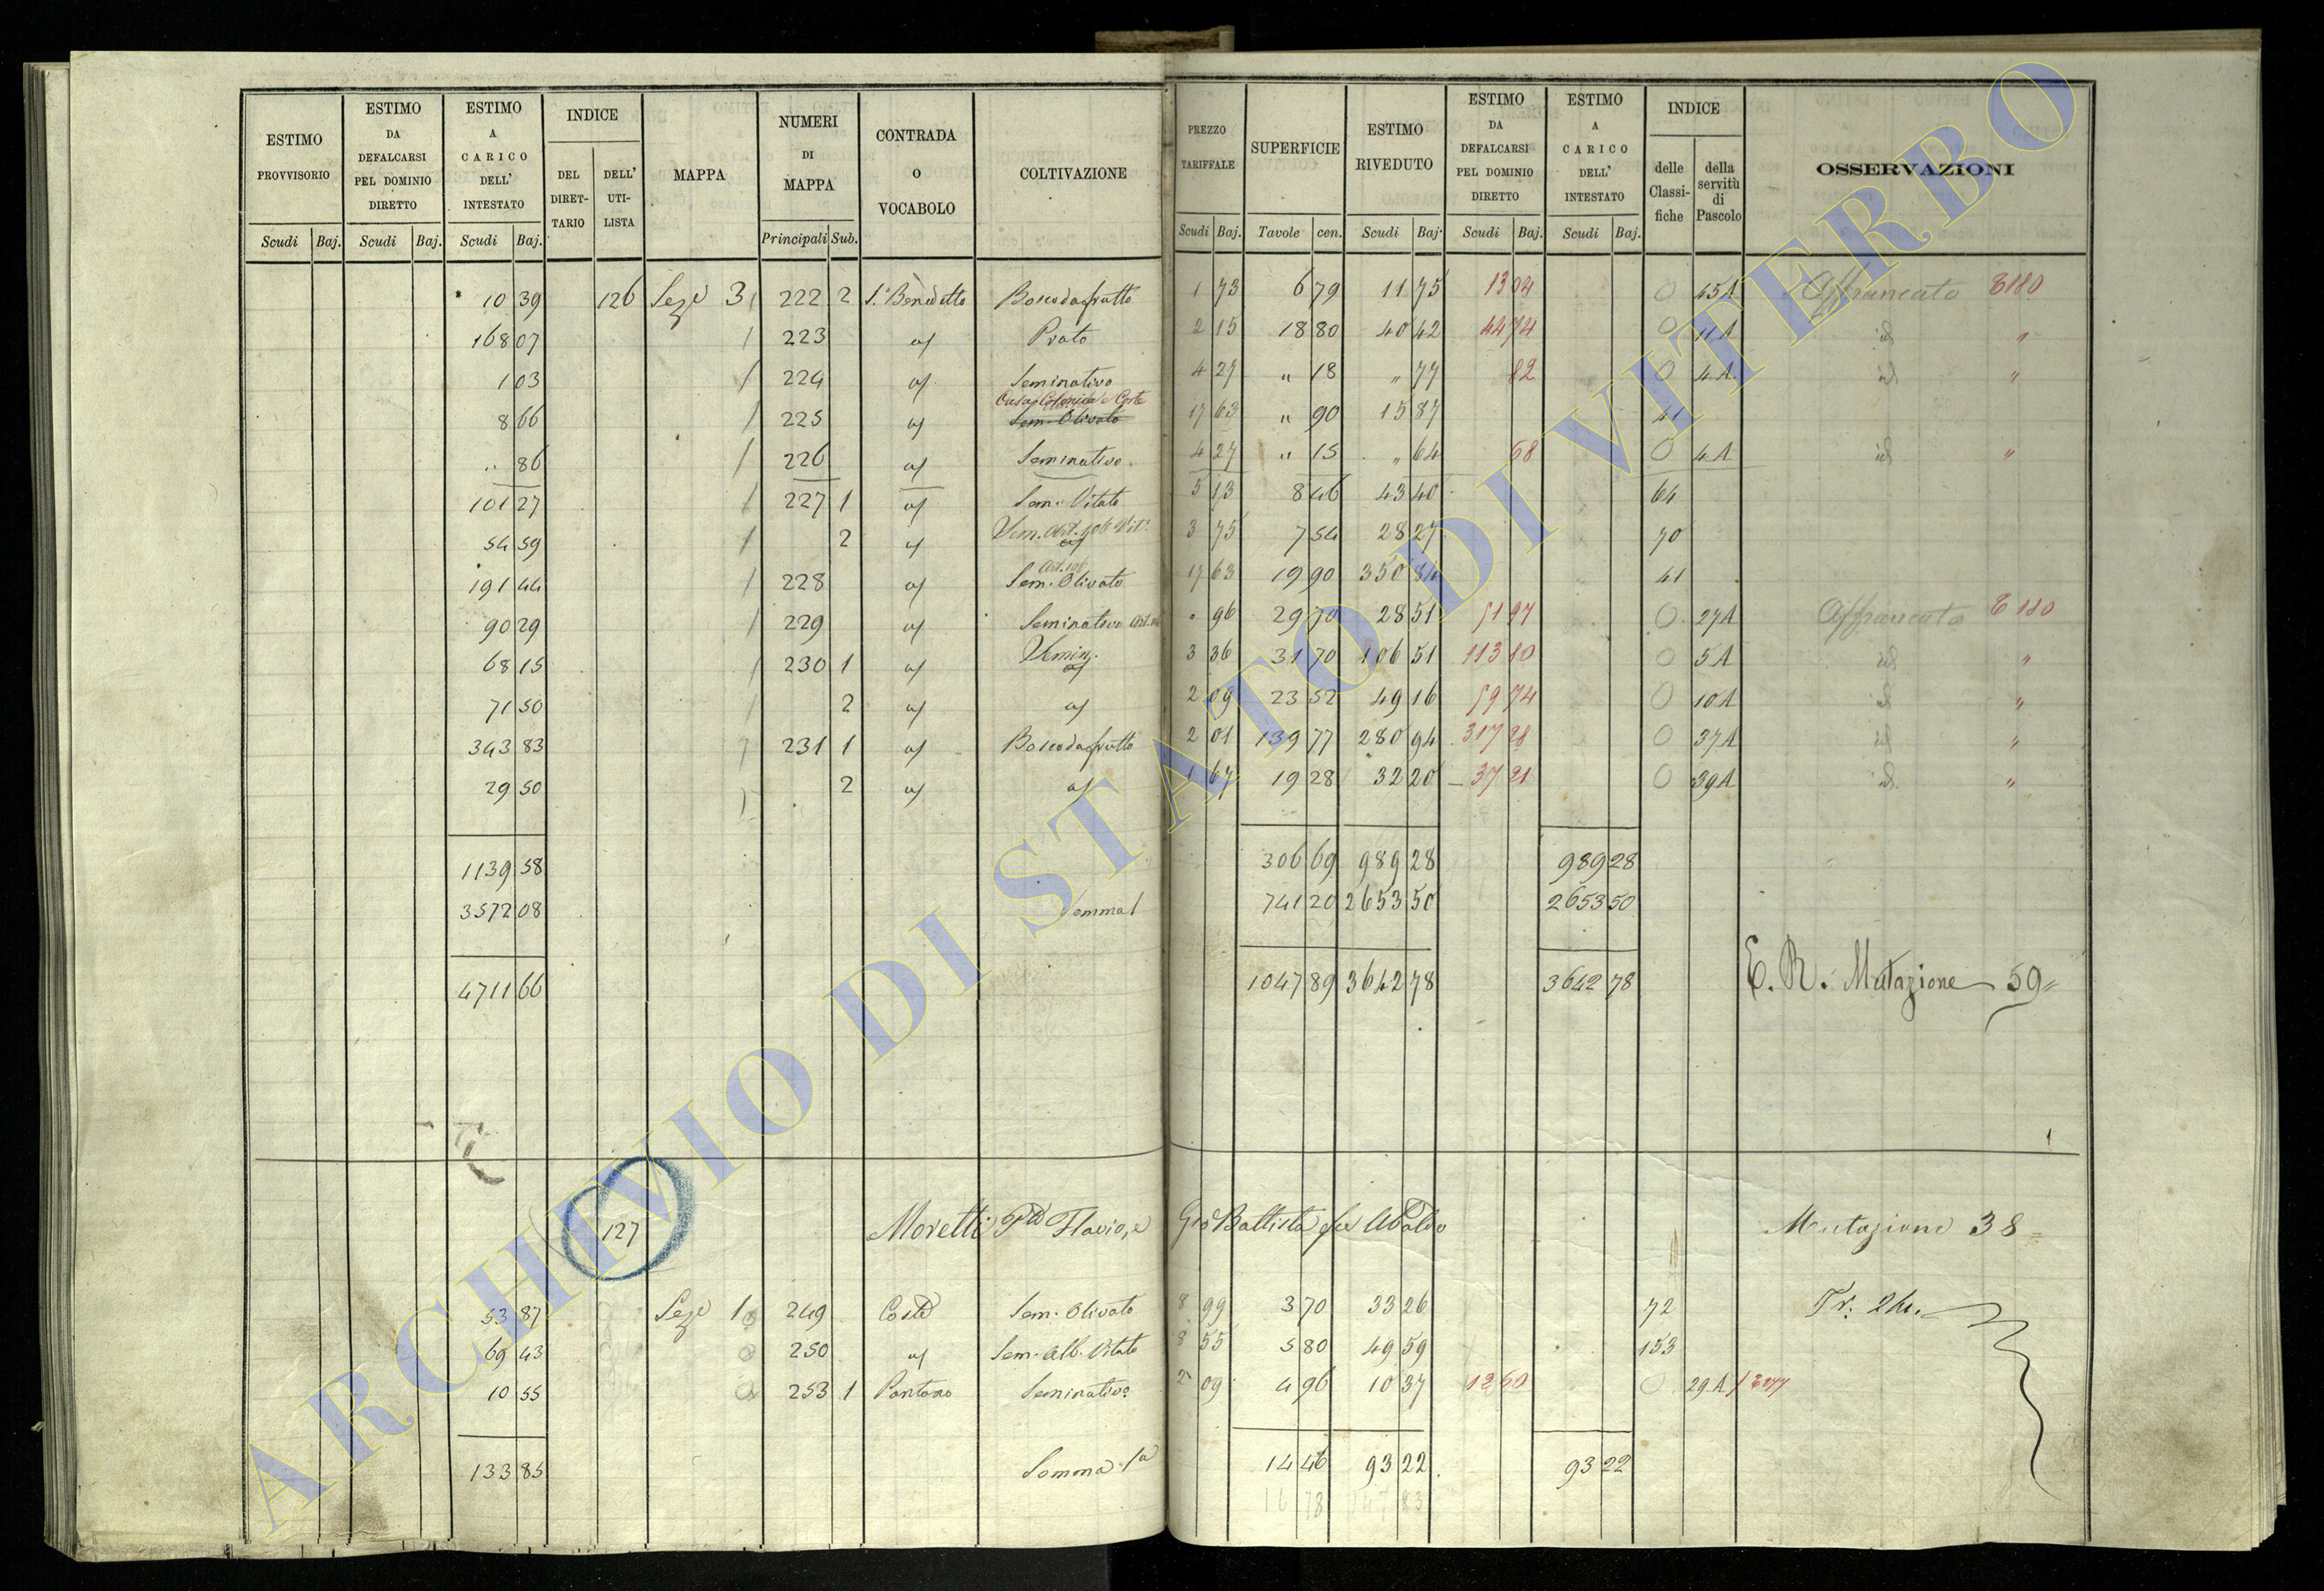 ESTIMO PROVVISORIO Scudi Baj.
ESTIMO DA DEFALCARSI PEL DOMINIO DIRETTO Scudi Baj.
ESTIMO A CARICO DELL' INTESTATO Scudi Baj.
INDICE DEL DIRET-TARIO DELL' UTI-LISTA
MAPPA
NUMERI DI MAPPA Principali Sub.
CONTRADA O VOCABOLO
COLTIVAZIONE
PREZZO TARIFFALE Scudi Baj.
SUPERFICIE Tavole cen.
ESTIMO RIVEDUTO Scudi Baj.
ESTIMO DA DEFALCARSI PEL DOMINIO DIRETTO Scudi Baj.
ESTIMO A CARICO DELL' INTESTATO Scudi Baj.
INDICE delle Classi-fiche della servitù di Pascolo
OSSERVAZIONI
10 39 126 Sez.e 3 222 2 S. Benedetto Bosco da frutto 1 73 6 79 11 75 13 04 0 45A Affrancato T180
168 07 223 Prato 2 15 18 80 40 42 44 74 0 11A id "
1 03 224 Seminativo 4 27 " 18 " 77 82 0 4A id "
Casa Colonica e Corte
8 66 225 Sem. Olivato 17 63 " 90 15 87 41
" 86 226 Seminativo 4 27 " 15 " 64 68 0 4A id "
101 27 227 1 Sem. Vitato 5 13 8 46 43 40 64
54 59 2 3 75 7 54 28 27 70
191 44 228 Sem. Olivato 17 63 19 90 350 84 41
90 29 229 Seminativo " 96 29 70 28 51 0 27A Affrancato T180
68 15 230 1 Semin. 3 36 31 70 106 51 113 80 0 5A id "
71 50 2 2 09 23 52 49 16 59 74 0 10A id "
343 83 231 1 Bosco da frutto 2 01 139 77 280 94 317 28 0 37A id "
29 50 2 1 67 19 28 32 20 37 21 0 39A id "
1139 58 306 69 989 28 989 28
3572 08 Somma 741 20 2653 50 2653 50
4711 66 1047 89 3642 78 3642 78 E. R. Mutazione 59
127 Moretti Flavio, e Gio Battista fu Ubaldo Mutazione 38
53 87 Sez.e 1 249 Coste Sem. Olivato 8 99 3 70 33 26 72
69 43 250 Sem. Alb. Vitato 8 55 5 80 49 59 153
10 55 253 1 Pantano Seminativo 2 09 4 96 10 37 0 29A
133 85 Somma 1a 14 46 93 22 93 22
ARCHIVIO DI STATO DI VITERBO